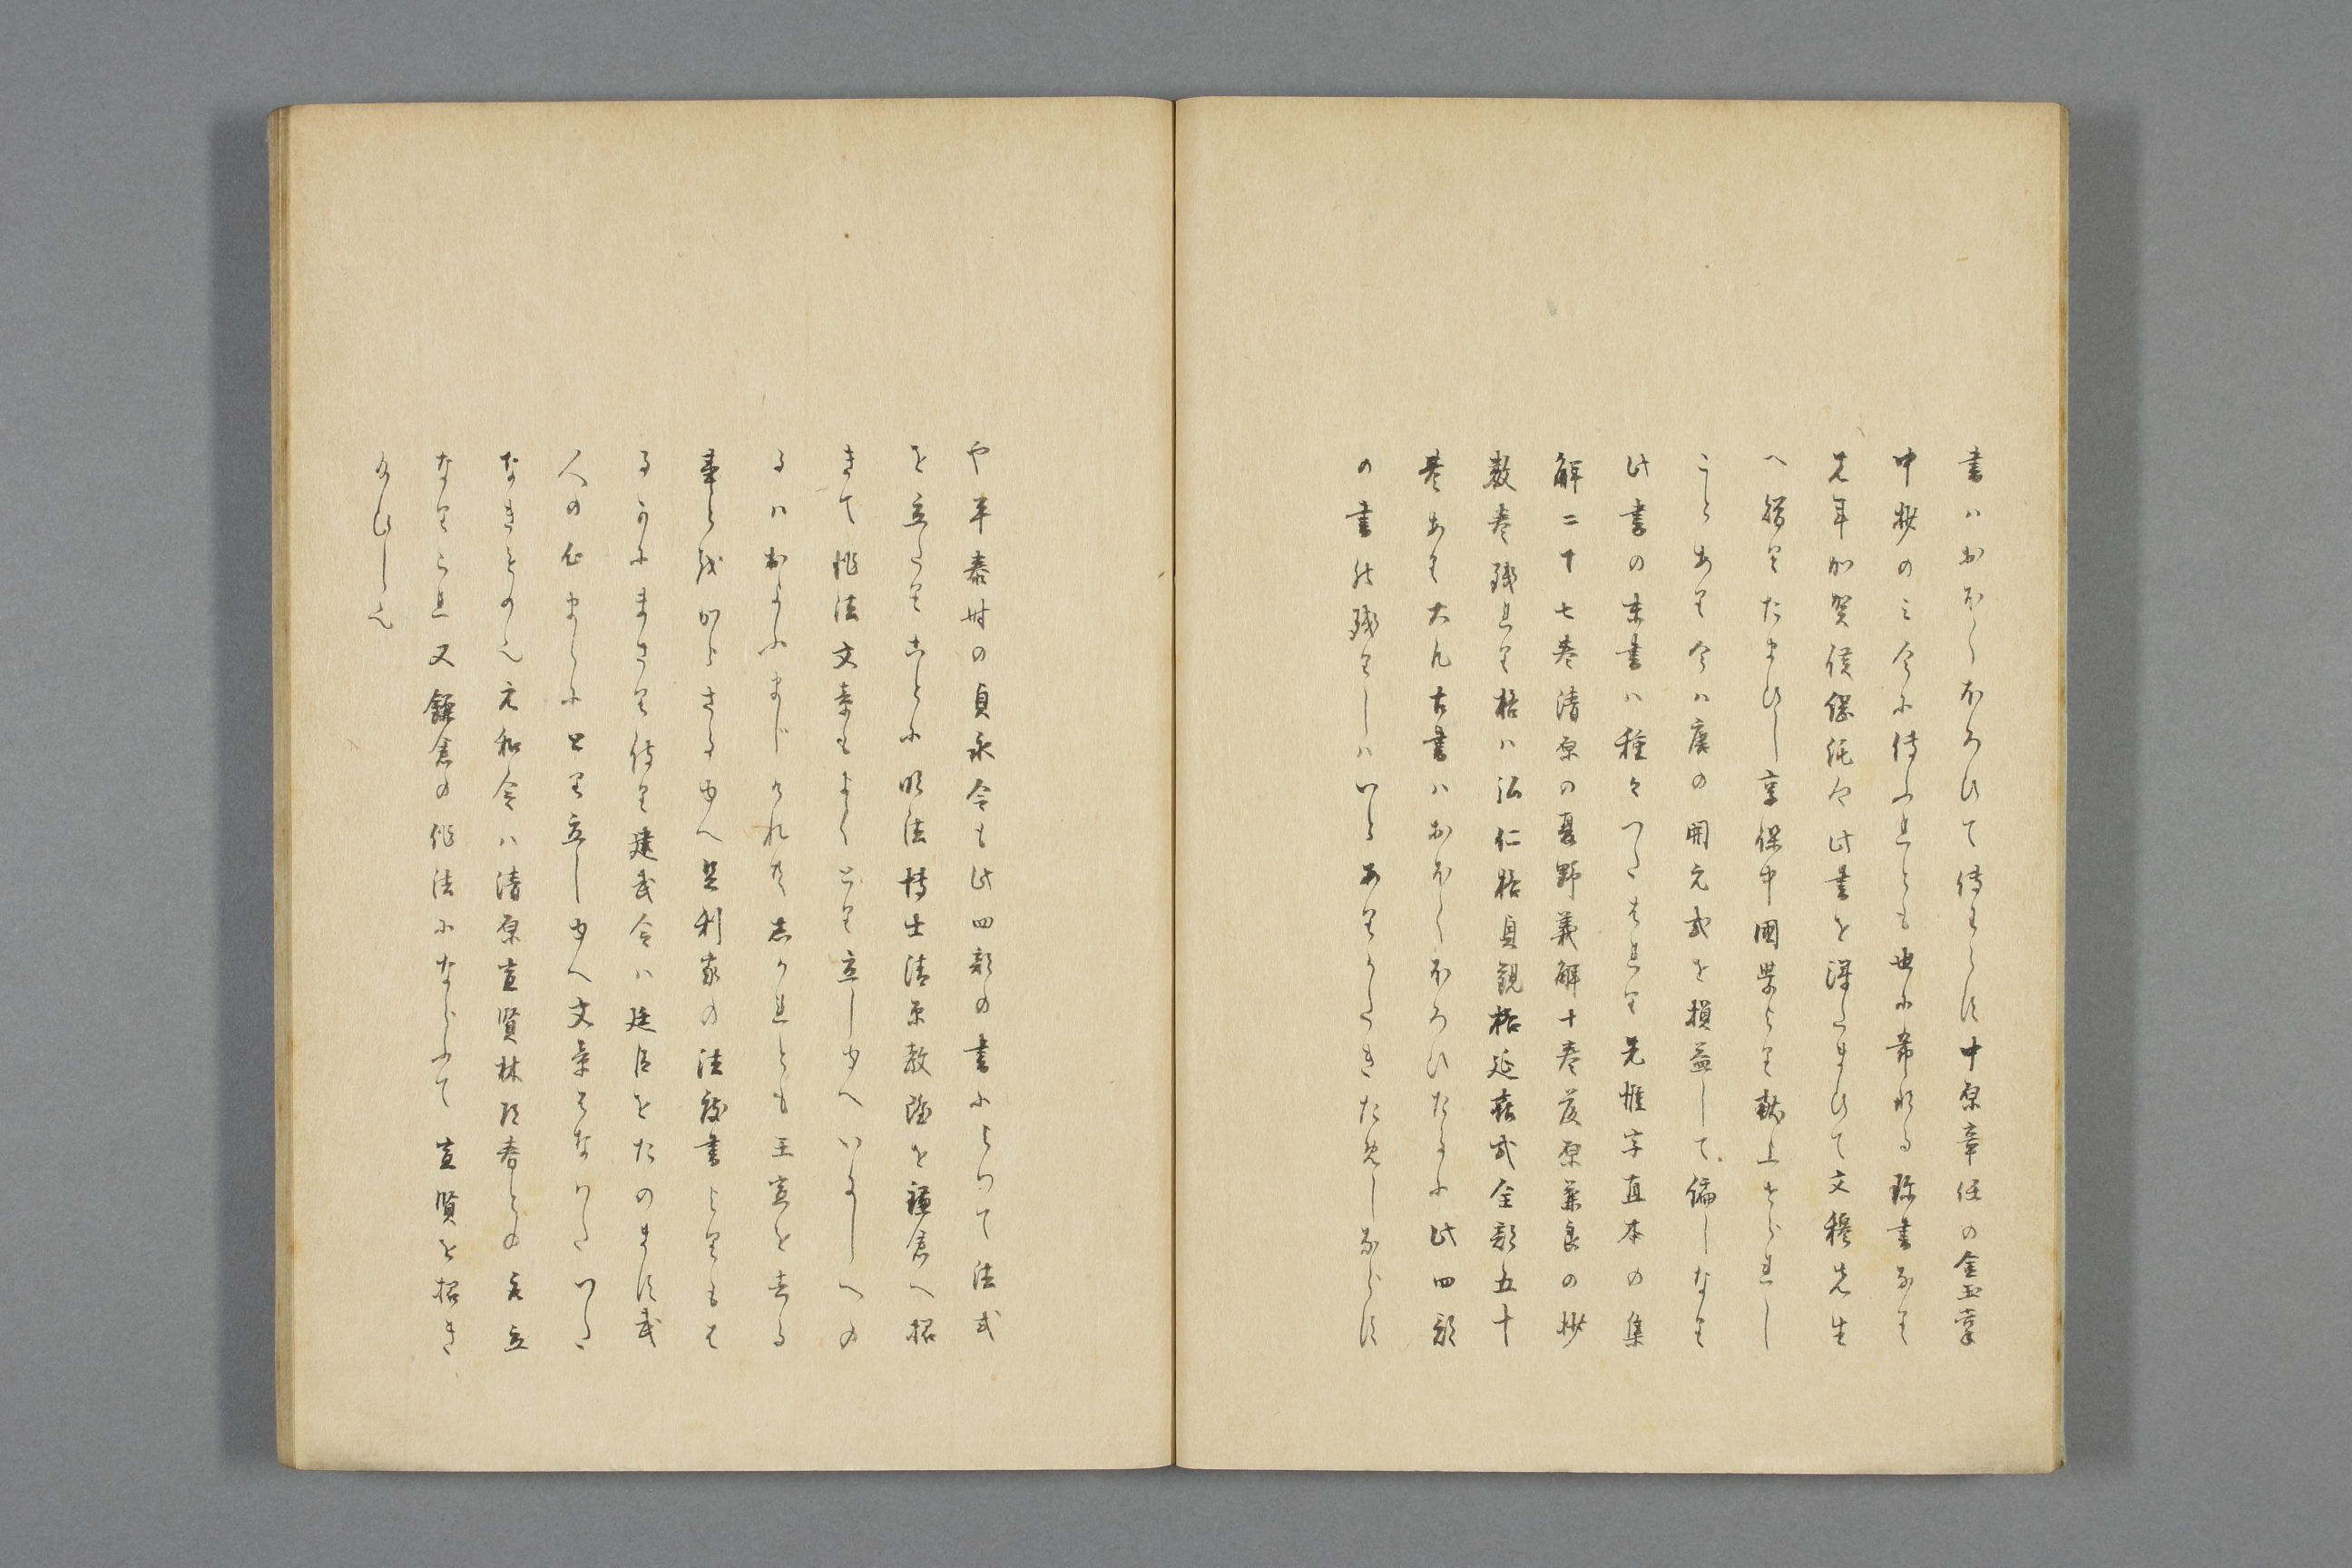 書ハおほくほろひて傳わらす中原章任の金玉掌
中抄のミ今に傳ふれとも世に希なる珍書なり
先年加賀侯綱紀公此書を得たまひて文穆先生
へ贈りたまひし享保中國學より獻上せられし
ことあり今ハ唐の開元式を損益して編しなり
此書の末書ハ種々つたはれり先惟宗直本の集
解二十七巻清原の夏野義解十巻藤原兼良の抄
数巻残れり格ハ弘仁格貞観格延喜式全部五十
巻あり大凡古書ハおほくほろひたるに此四部
の書の残りしハいとありかたきためしならす
や平泰時の貞永令も此四部の書によつて法式
を立たりことに明法博士清原教隆を鎌倉へ招
きて作法文章もよくとり立しゆへいにしへの
るハおよふましけれ共しかれとも王室を去る
事と成からさるゆへ足利家の法度書よりもは
るかにまさり侍り建武令ハ廷臣をたのます武
人の仁ましに甘り立しゆへ文章はなハたつた
なきもの也元和令ハ清原宣賢林道春との取立
なりこれ又鎌倉の作法にならふて宣賢を招き
給ひし也